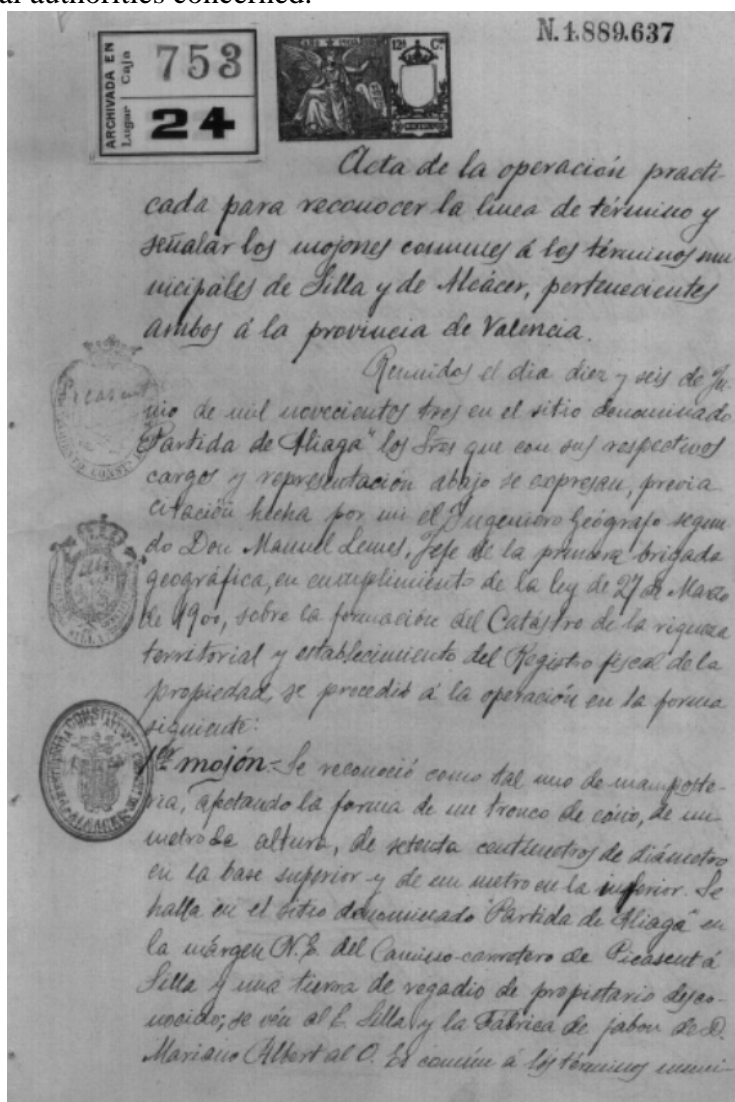 al authorities concerned.
N.1.889.637
ARCHIVADA EN
Lugar Caja
753
24
12ª C.
Acta de la operación practi-
cada para reconocer la linea de término y
señalar los mojones comunes á los términos mu
nicipales de Silla y de Alcácer, pertenecientes
ambos á la provincia de Valencia.
Reunidos el dia diez y seis de Ju-
nio de mil novecientos tres en el sitio denominado
"Partida de Aliaga" los Sres que con sus respectivos
cargos y representación abajo se expresan, previa
citación hecha por mi el Ingeniero Geógrafo segun-
do Don Manuel Lemes, Jefe de la primera brigada
geográfica, en cumplimiento de la ley de 27 de Marzo
de 1900, sobre la formación del Catástro de la riqueza
territorial y establecimiento del Registro fiscal de la
propiedad, se procedió á la operación en la forma
siguiente:
1er mojón.= Se reconoció como tal uno de mamposte-
ria, afectando la forma de un tronco de cono, de un
metro de altura, de setenta centímetros de diámetro
en la base superior y de un metro en la inferior. Se
halla en el sitio denominado "Partida de Aliaga" en
la márgen N.E. del Camino-carretero de Picasent á
Silla y una tierra de regadio de propietario desco-
nocido; se vén al E. Silla y la Fábrica de jabon de D.
Mariano Albert al O. Es común á los términos muni-